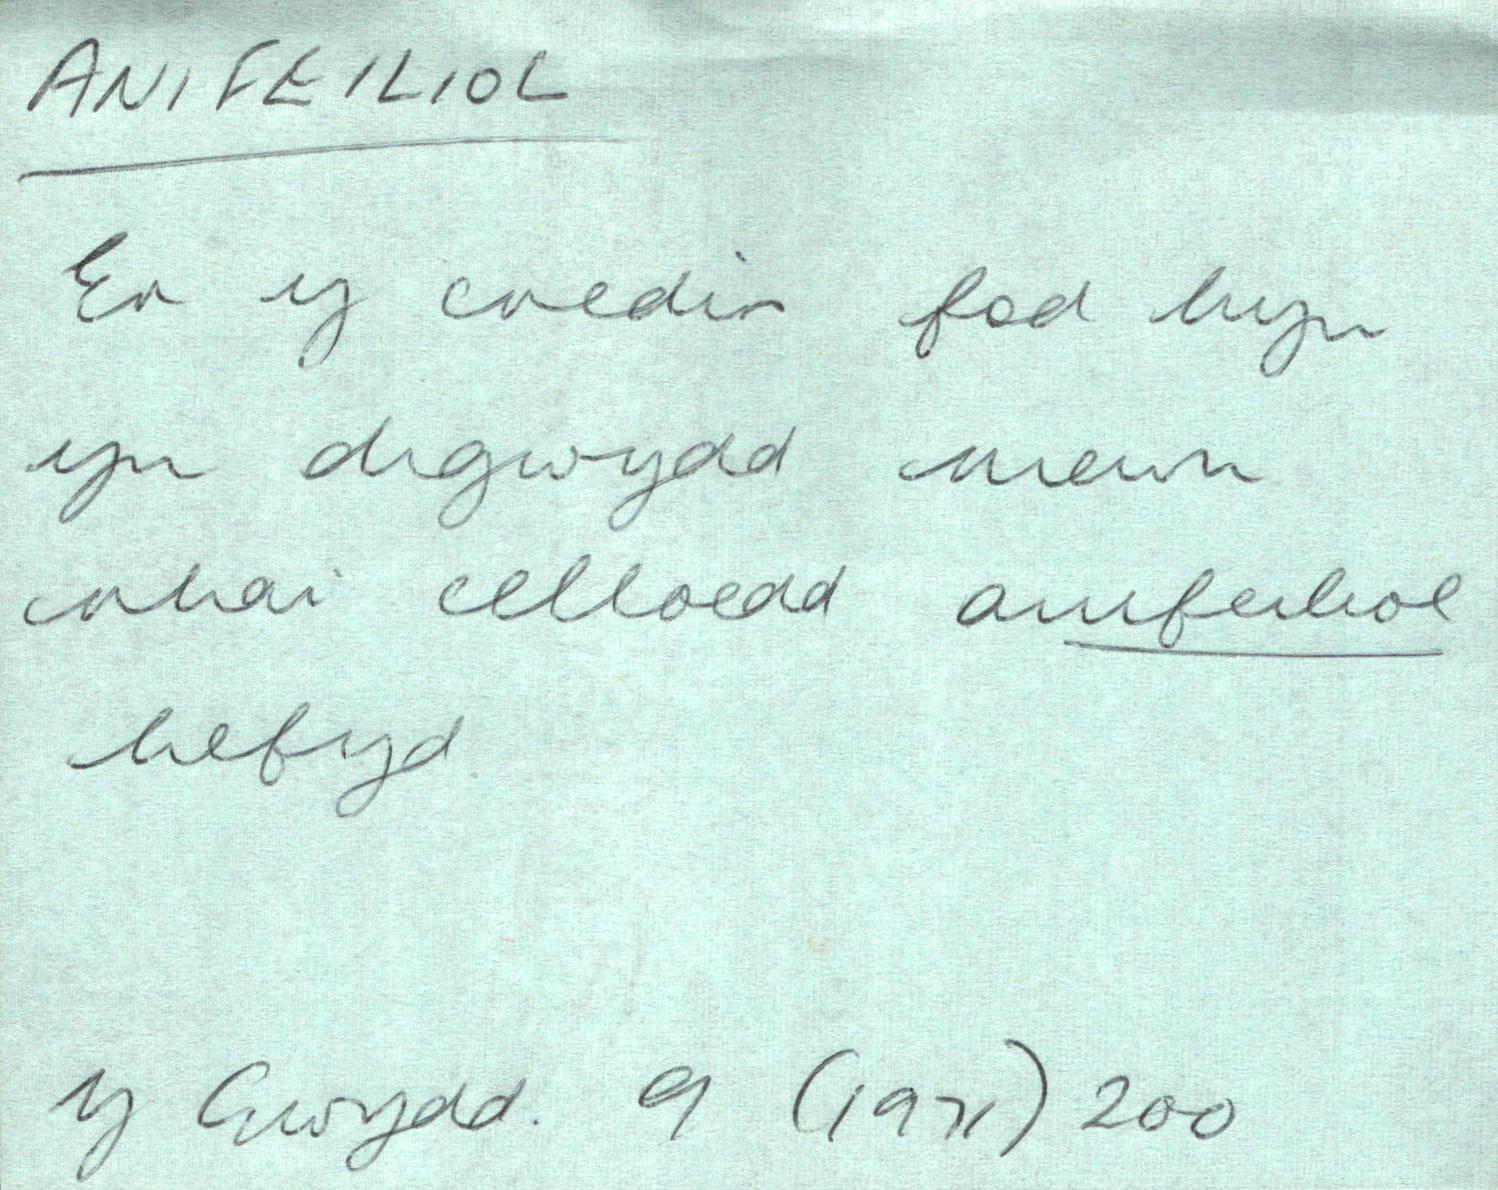 ANIFEILIOL
Er y credir fod hyn
yn digwydd mewn
rhai celloedd anifeiliol
hefyd
Y Gwydd. 9 (1971) 200